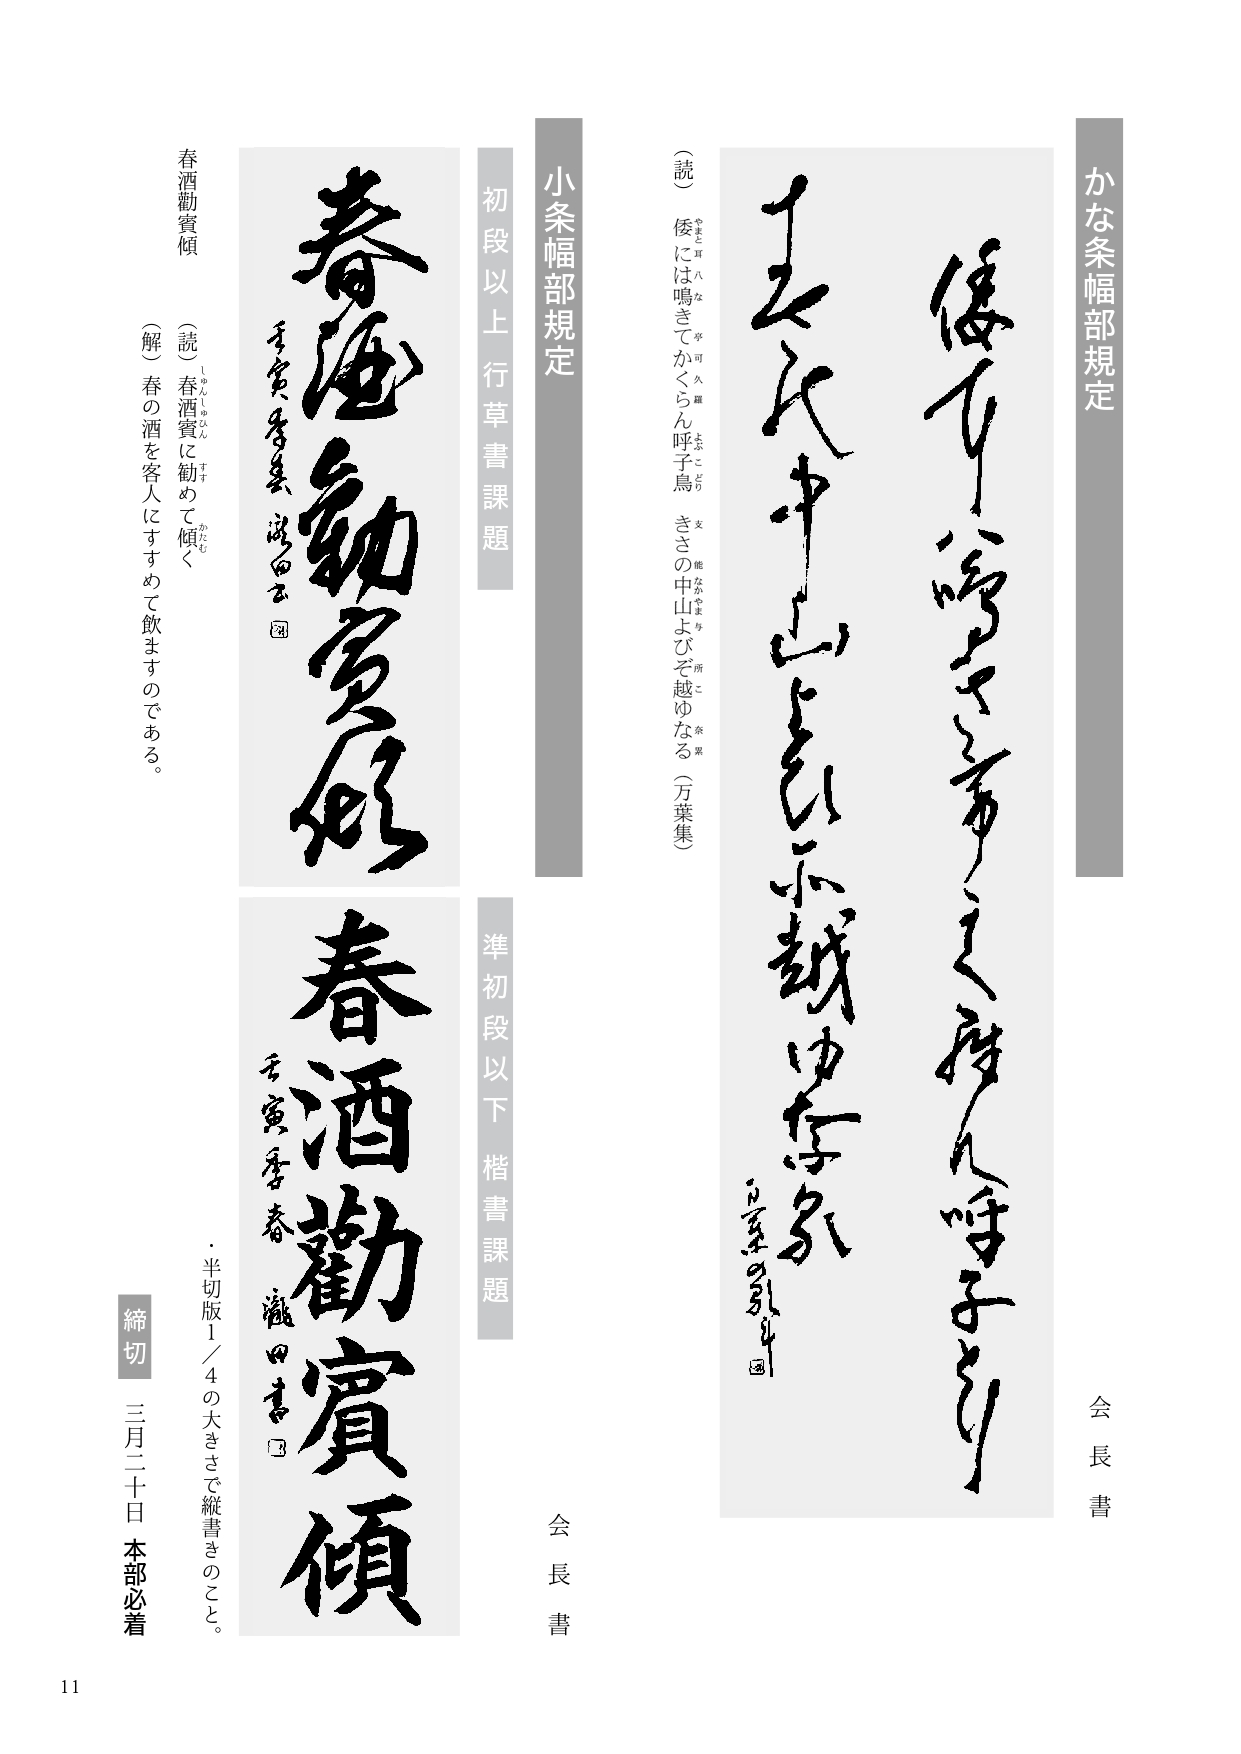 かな条幅部規定
会長書
倭
鳴
呼子
中山
越ゆ奈
（読）　倭には鳴きてかくらん呼子鳥　きさの中山よびぞ越ゆなる（万葉集）
小条幅部規定
会長書
初段以上 行草書課題
春酒勸賓傾
壬寅季春 瀧田書
準初段以下 楷書課題
春酒勸賓傾
壬寅季春 瀧田書
・半切版1／4の大きさで縦書きのこと。
春酒勸賓傾
（読）春酒賓に勧めて傾く
（解）春の酒を客人にすすめて飲ますのである。
締切 三月二十日 本部必着
11